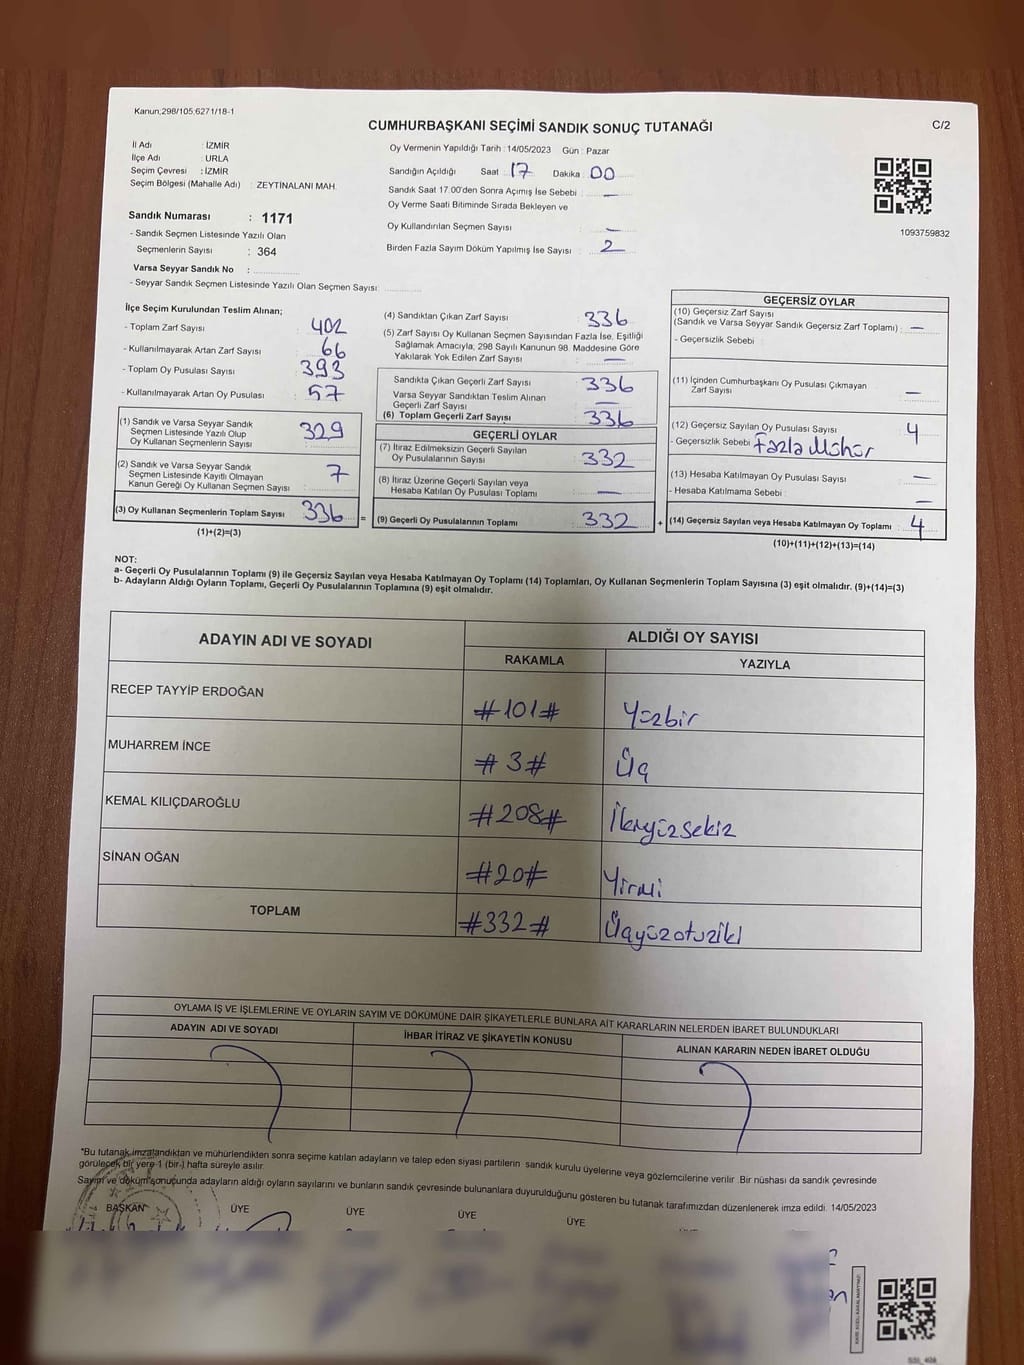 Kanun;298/105;6271/18-1
CUMHURBAŞKANI SEÇİMİ SANDIK SONUÇ TUTANAĞI
C/2
İl Adı : İZMİR
İlçe Adı : URLA
Seçim Çevresi : İZMİR
Seçim Bölgesi (Mahalle Adı) : ZEYTİNALANI MAH.
Sandık Numarası : 1171
- Sandık Seçmen Listesinde Yazılı Olan
Seçmenlerin Sayısı : 364
Varsa Seyyar Sandık No :
- Seyyar Sandık Seçmen Listesinde Yazılı Olan Seçmen Sayısı:
Oy Vermenin Yapıldığı Tarih : 14/05/2023 Gün : Pazar
Sandığın Açıldığı Saat 17 Dakika : 00
Sandık Saat 17.00'den Sonra Açımış İse Sebebi : —
Oy Verme Saati Bitiminde Sırada Bekleyen ve
Oy Kullandırılan Seçmen Sayısı : —
Birden Fazla Sayım Döküm Yapılmış İse Sayısı : 2
1093759832
İlçe Seçim Kurulundan Teslim Alınan;
- Toplam Zarf Sayısı : 402
- Kullanılmayarak Artan Zarf Sayısı : 66
- Toplam Oy Pusulası Sayısı : 393
- Kullanılmayarak Artan Oy Pusulası : 57
(1) Sandık ve Varsa Seyyar Sandık
Seçmen Listesinde Yazılı Olup
Oy Kullanan Seçmenlerin Sayısı : 329
(2) Sandık ve Varsa Seyyar Sandık
Seçmen Listesinde Kayıtlı Olmayan
Kanun Gereği Oy Kullanan Seçmen Sayısı : 7
(3) Oy Kullanan Seçmenlerin Toplam Sayısı : 336
(1)+(2)=(3)
(4) Sandıktan Çıkan Zarf Sayısı : 336
(5) Zarf Sayısı Oy Kullanan Seçmen Sayısından Fazla İse, Eşitliği
Sağlamak Amacıyla; 298 Sayılı Kanunun 98. Maddesine Göre
Yakılarak Yok Edilen Zarf Sayısı : —
Sandıkta Çıkan Geçerli Zarf Sayısı : 336
Varsa Seyyar Sandıktan Teslim Alınan
Geçerli Zarf Sayısı : —
(6) Toplam Geçerli Zarf Sayısı : 336
GEÇERLİ OYLAR
(7) İtiraz Edilmeksizin Geçerli Sayılan
Oy Pusulalarının Sayısı : 332
(8) İtiraz Üzerine Geçerli Sayılan veya
Hesaba Katılan Oy Pusulası Toplamı : —
= (9) Geçerli Oy Pusulalarının Toplamı : 332
GEÇERSİZ OYLAR
(10) Geçersiz Zarf Sayısı
(Sandık ve Varsa Seyyar Sandık Geçersiz Zarf Toplamı) : —
- Geçersizlik Sebebi :
(11) İçinden Cumhurbaşkanı Oy Pusulası Çıkmayan
Zarf Sayısı : —
(12) Geçersiz Sayılan Oy Pusulası Sayısı : 4
- Geçersizlik Sebebi : Fazla Mühür
(13) Hesaba Katılmayan Oy Pusulası Sayısı : —
- Hesaba Katılmama Sebebi : —
+ (14) Geçersiz Sayılan veya Hesaba Katılmayan Oy Toplamı : 4
(10)+(11)+(12)+(13)=(14)
NOT:
a- Geçerli Oy Pusulalarının Toplamı (9) ile Geçersiz Sayılan veya Hesaba Katılmayan Oy Toplamı (14) Toplamları, Oy Kullanan Seçmenlerin Toplam Sayısına (3) eşit olmalıdır. (9)+(14)=(3)
b- Adayların Aldığı Oyların Toplamı, Geçerli Oy Pusulalarının Toplamına (9) eşit olmalıdır.
ADAYIN ADI VE SOYADI
ALDIĞI OY SAYISI
RAKAMLA YAZIYLA
RECEP TAYYİP ERDOĞAN #101# Yüzbir
MUHARREM İNCE #3# Üç
KEMAL KILIÇDAROĞLU #208# İkiyüzsekiz
SİNAN OĞAN #20# Yirmi
TOPLAM #332# Üçyüzotuziki
OYLAMA İŞ VE İŞLEMLERİNE VE OYLARIN SAYIM VE DÖKÜMÜNE DAİR ŞİKAYETLERLE BUNLARA AİT KARARLARIN NELERDEN İBARET BULUNDUKLARI
ADAYIN ADI VE SOYADI İHBAR İTİRAZ VE ŞİKAYETİN KONUSU ALINAN KARARIN NEDEN İBARET OLDUĞU
*Bu tutanak imzalandıktan ve mühürlendikten sonra seçime katılan adayların ve talep eden siyasi partilerin sandık kurulu üyelerine veya gözlemcilerine verilir. Bir nüshası da sandık çevresinde
görülecek bir yere 1 (bir-) hafta süreyle asılır.
Sayım ve döküm sonucunda adayların aldığı oyların sayılarını ve bunların sandık çevresinde bulunanlara duyurulduğunu gösteren bu tutanak tarafımızdan düzenlenerek imza edildi. 14/05/2023
BAŞKAN ÜYE ÜYE ÜYE ÜYE